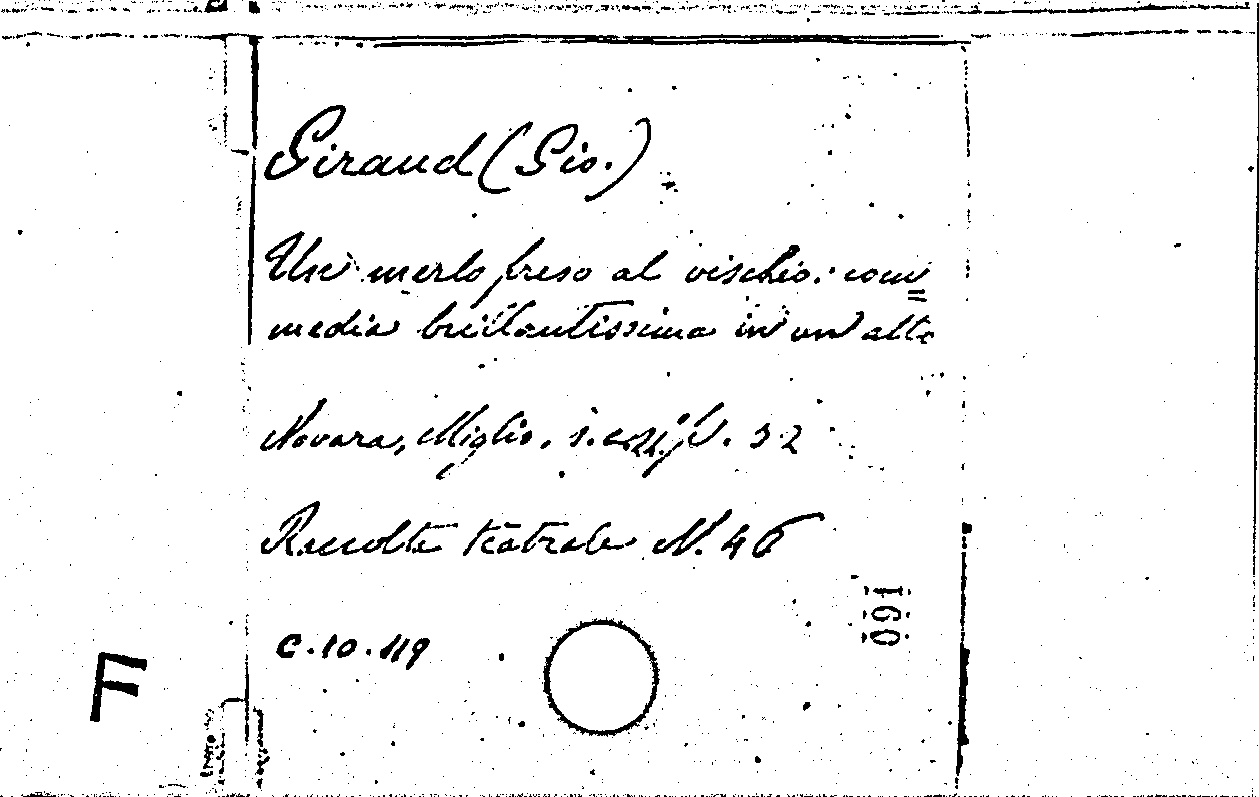 Giraud (Gio.)
Un merlo preso al vischio: com=
media brillantissima in un atto
Novara, Miglio, s. a. 32
Raccolta teatrale N. 46
C.10.119
091
F